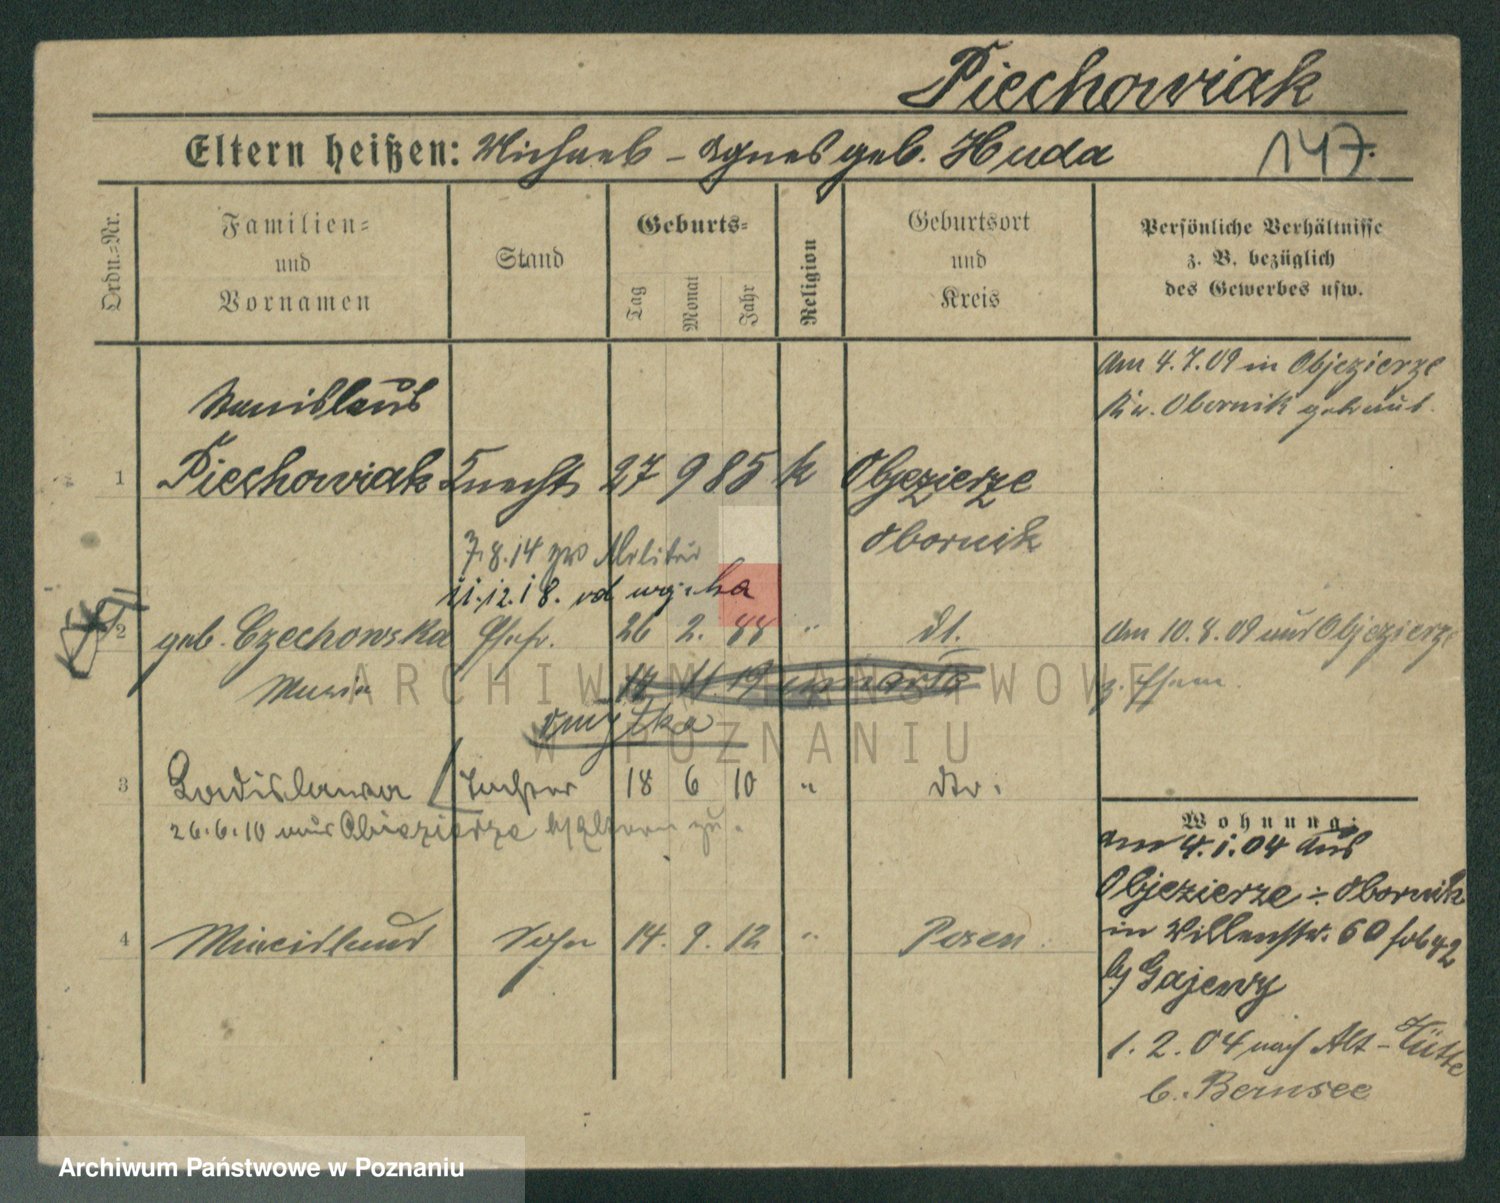 Piechowiak
Eltern heißen: Michael – Agnes geb. Huda
147.
Ordn.=Nr.
Familien=
und
Vornamen
Stand
Geburts=
Tag
Monat
Jahr
Religion
Geburtsort
und
Kreis
Persönliche Verhältnisse
z. B. bezüglich
des Gewerbes usw.
am 4.7.09 in Objezierze
Kr. Obornik getraut.
Stanislaus
1 Piechowiak Knecht 27 9 85 k Objezierze
Obornik
7.8.14 zum Militär
11.12.18.
2 geb. Czechowska Ehefr. 26 2. 88 " dt.
Maria
14 11 19 umarła
omyłka
am 10.8.09 aus Objezierze
z. Ehem.
3 Ladislawa Tochter 18 6 10 " dto.
26.6.10 aus Objezierze b/Eltern zu.
4 Miecislaus Sohn 14. 9. 12 " Posen.
Wohnung:
am 4.1.04 aus
Objezierze – Obornik
in 60
b/ Gajewy
1.2.04 nach Alt-Hütte
b. Bernsee
ARCHIWUM PAŃSTWOWE
W POZNANIU
Archiwum Państwowe w Poznaniu